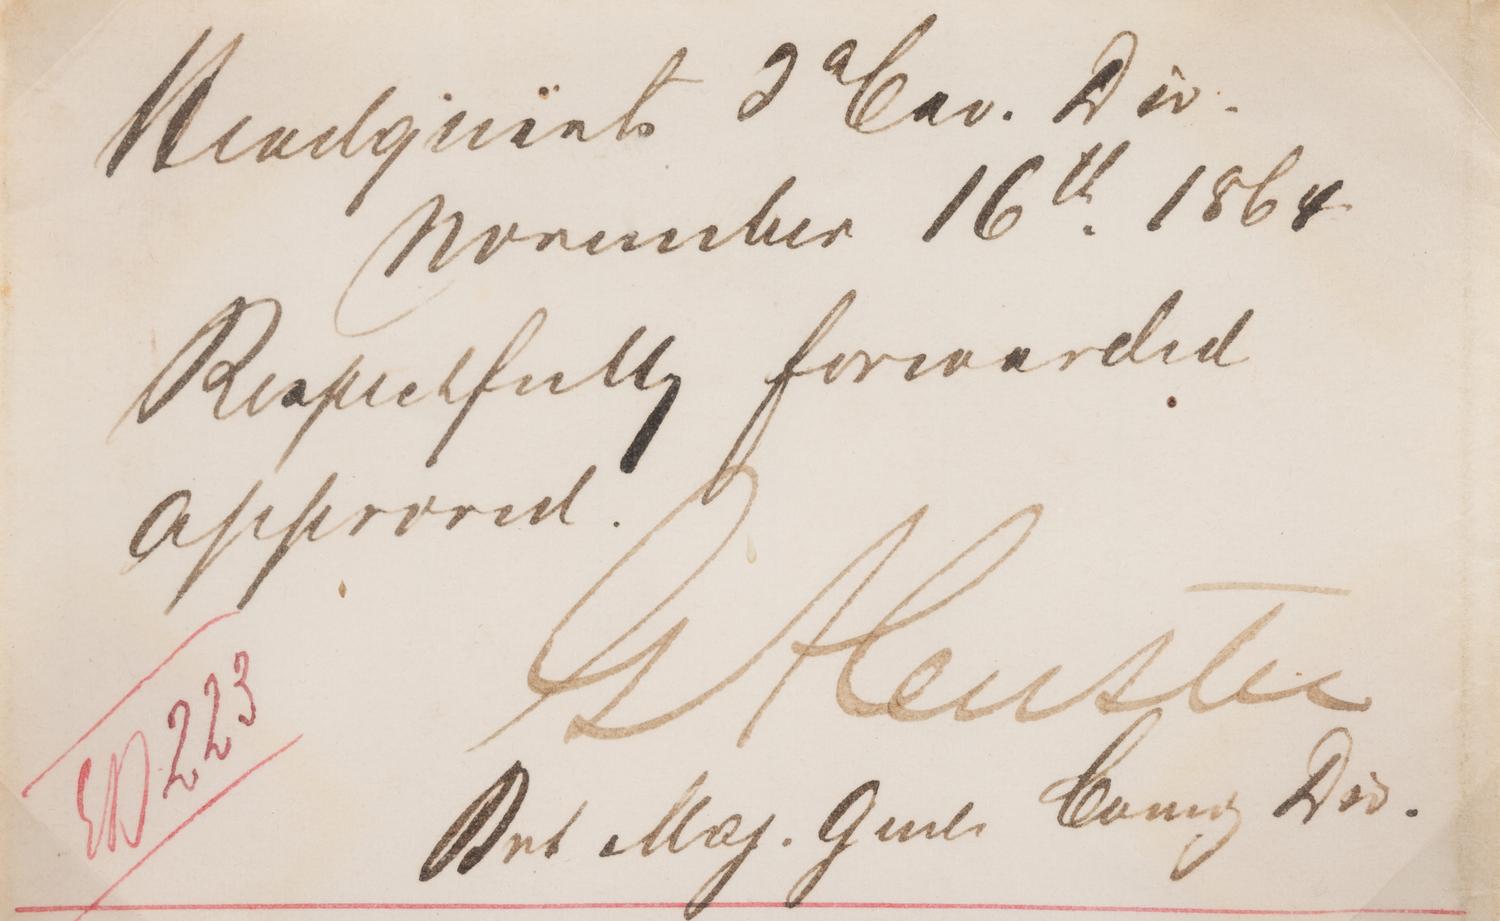 Headquarts 3d Cav. Div.
November 16th. 1864
Respectfully forwarded
approved.
G A Custer
Bvt Maj. Genl. Comg Div.
ED 223